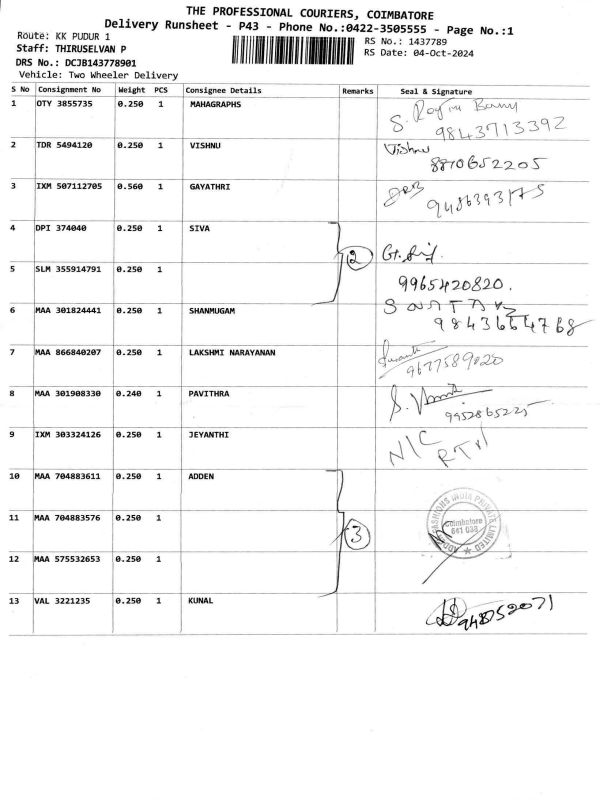 THE PROFESSIONAL COURIERS, COIMBATORE
Delivery Runsheet - P43 - Phone No.:0422-3505555 - Page No.:1
Route: KK PUDUR 1
RS No.: 1437789
Staff: THIRUSELVAN P
RS Date: 04-Oct-2024
DRS No.: DCJB143778901
Vehicle: Two Wheeler Delivery
S No Consignment No Weight PCS Consignee Details Remarks Seal & Signature
1 OTY 3855735 0.250 1 MAHAGRAPHS
9843713392
2 TDR 5494120 0.250 1 VISHNU Vishnu
8870652205
3 IXM 507112705 0.560 1 GAYATHRI
9486393175
4 DPI 374040 0.250 1 SIVA
2
5 SLM 355914791 0.250 1
9965420820.
6 MAA 301824441 0.250 1 SHANMUGAM
9843664768
7 MAA 866840207 0.250 1 LAKSHMI NARAYANAN
9677589020
8 MAA 301908330 0.240 1 PAVITHRA
9952865225
9 IXM 303324126 0.250 1 JEYANTHI N/C
RTN
10 MAA 704883611 0.250 1 ADDEN
11 MAA 704883576 0.250 1
3
FASHIONS INDIA PRIVATE LIMITED
Coimbatore
641 038
12 MAA 575532653 0.250 1
13 VAL 3221235 0.250 1 KUNAL